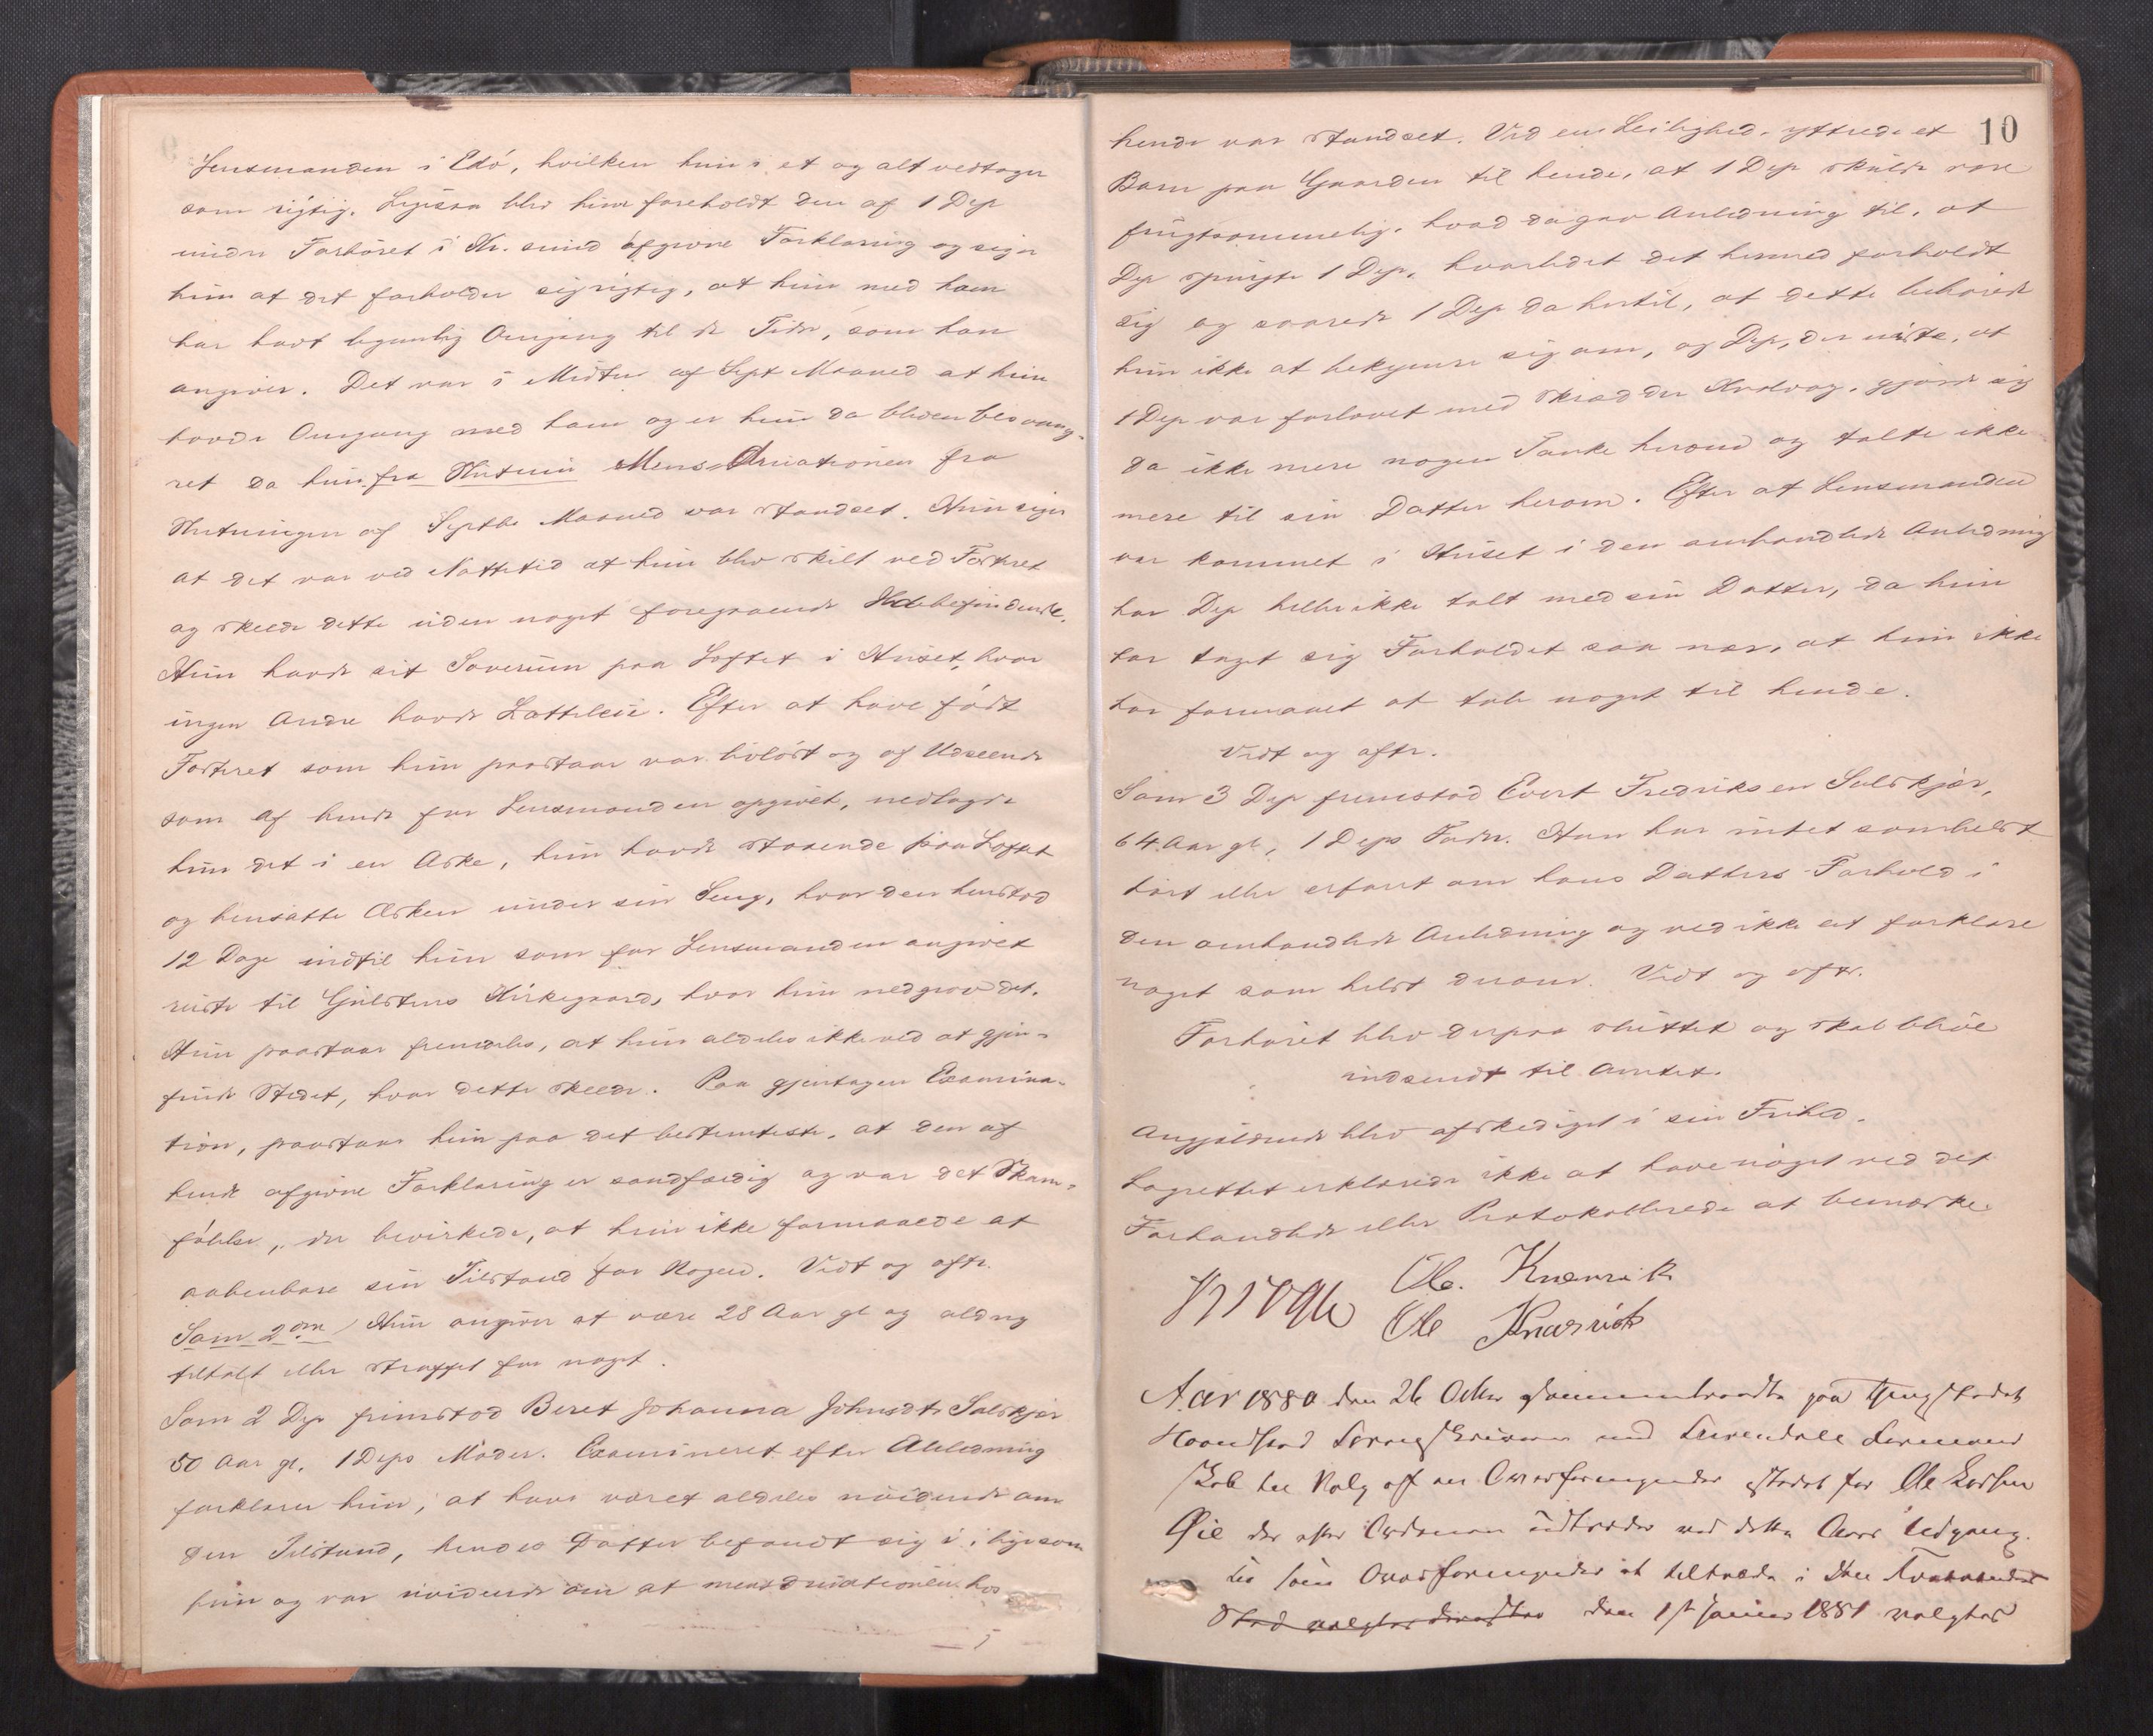 Lensmanden i Edö, hvilken hun i et og alt vedtager
som rigtig. Ligesaa blev hun foreholdt den af 1 Dep
under Forhöret i Kr. sund afgivne Forklaring og siger
hun at det forholder sig rigtig, at hun med ham
har havt legemlig Omgang til de Tider, som han
angiver. Det var i Midten af Sept Maaned at hun
havde Omgang med ham og er hun da bleven besvang-
ret da hun fra Slutnin Menstruationen fra
Slutningen af Septbr Maaned var standset. Hun siger
at det var ved Nattetid at hun blev skilt ved Fosteret
og skede dette uden noget foregaaende Ildebefindende.
Hun havde sit Soverum paa Loftet i Huset, hvor
ingen Andre havde Natteleie. Efter at have födt
Fosteret som hun paastaar var livlöst og af Udseende
som af hende for Lensmanden opgivet, nedlagde
hun det i en Æske, hun havde staaende paa Loftet
og hensatte Æsken under sin Seng, hvor den henstod
12 Dage indtil hun som for Lensmanden angivet
reiste til Gulstens Kirkegaard, hvor hun nedgrov det.
Hun paastaar fremdeles, at hun aldeles ikke ved at gjen-
finde Stedet, hvor dette skede. Paa gjentagen Examina-
tion, paastaar hun paa det bestemteste, at den af
hende afgivne Forklaring er sandfærdig og var det Skam-
fölelse, der bevirkede, at hun ikke formaaede at
aabenbare sin Tilstand for Nogen. Vedt og aftr.
Som 2den Hun angiver at være 28 Aar gl og aldrig
tiltalt eller straffet for noget.
Som 2 Dep fremstod Beret Johanna Johnsdtr Solskjær
50 Aar gl. 1 Deps Moder. Examineret efter Anledning
forklarer hun, at have været aldeles uvidende om
den Tilstand, hendes Datter befandt sig i, ligesom
hun og var uvidende om at menstruationen hos
10
hende var standset. Ved en Leilighed, yttrede et
Barn paa Gaarden til hende, at 1 Dep skulde være
frugtsommelig, hvad da gav Anledning til, at
Dep spurgte 1 Dep, hvorledes det hermed forholdt
sig og svarede 1 Dep da hertil, at dette behövede
hun ikke at bekymre sig om, og Dep, der vidste, at
1 Dep var forlovet med Skrædder gjorde sig
da ikke mere nogen Tanke herom og talte ikke
mere til sin Datter herom. Efter at Lensmanden
var kommet i Huset i den omhandlede Anledning
har Dep heller ikke talt med sin Datter, da hun
har taget sig Forholdet saa nær, at hun ikke
har formaaet at tale noget til hende.
Vedt og aftr.
Som 3 Dep fremstod Evert Fredriksen Solskjær,
64 Aar gl, 1 Deps Fader. Han har intet somhelst
hört eller erfaret om hans Datters Forhold i
den omhandlede Anledning og ved ikke at forklare
noget som helst derom. Vedt og aftr.
Forhöret blev derpaa sluttet og skal blive
indsendt til Amtet.
Angjældende blev afskediget i sin Frihed.
Lagrettet erklærede ikke at have noget ved det
Forhandlede eller Protokollerede at bemærke.
Krogh Ole Knarvik
Ole Knarvik
Aar 1880 den 26 Octbr paa Thingstedet
Sorenskriveren med
Valg af en Overformynder istedet for Ole Larsen
Öie der efter udtræder ved dette Aars Udgang.
som Overformynder at tiltræde i
den 1st Januar 1881 valgtes